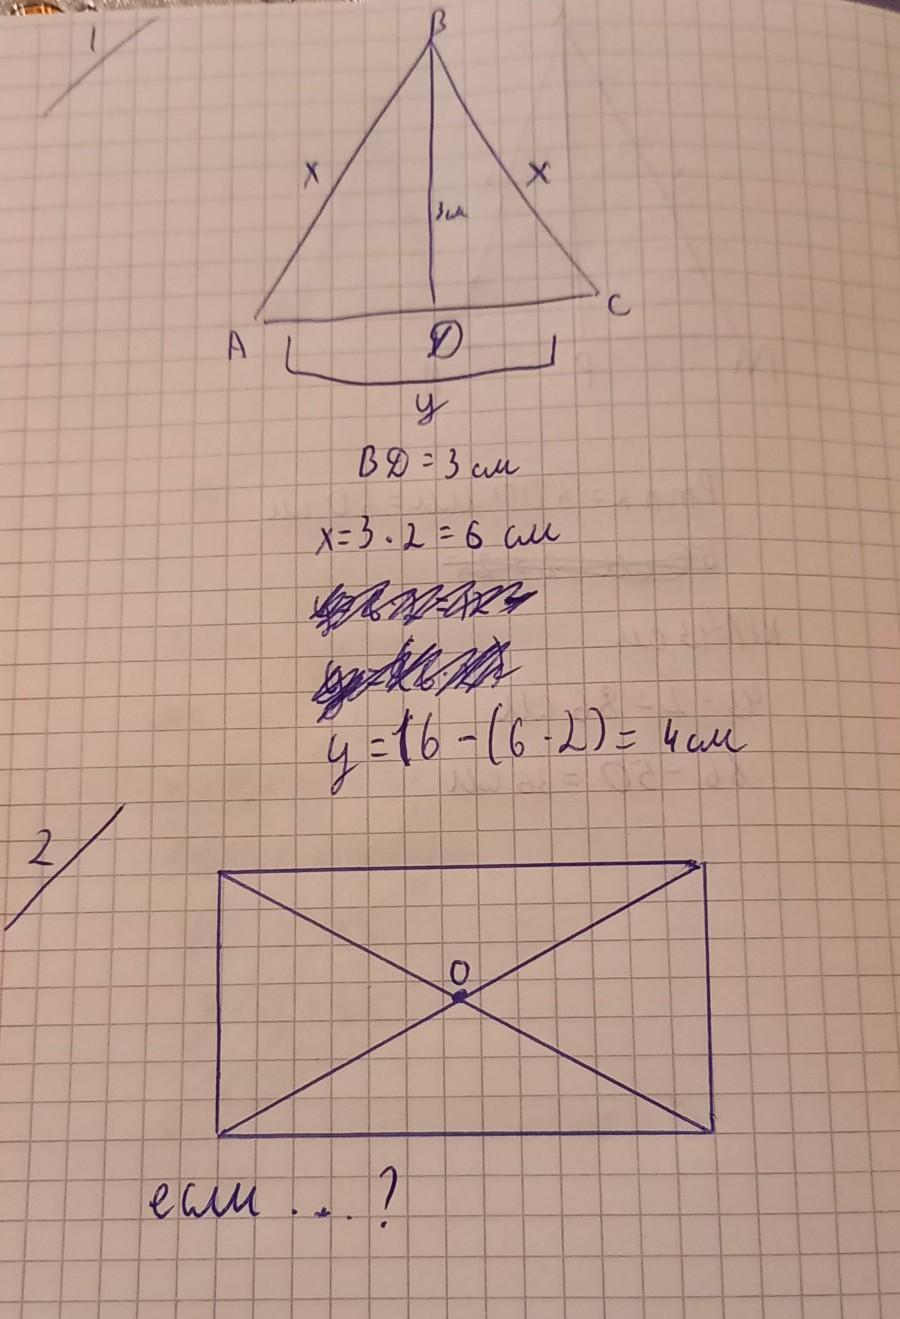 1
B
x x
3см
A D C
y
BD = 3 см
x=3·2=6 см
y=16-(6·2)=4см
2
O
если ... ?